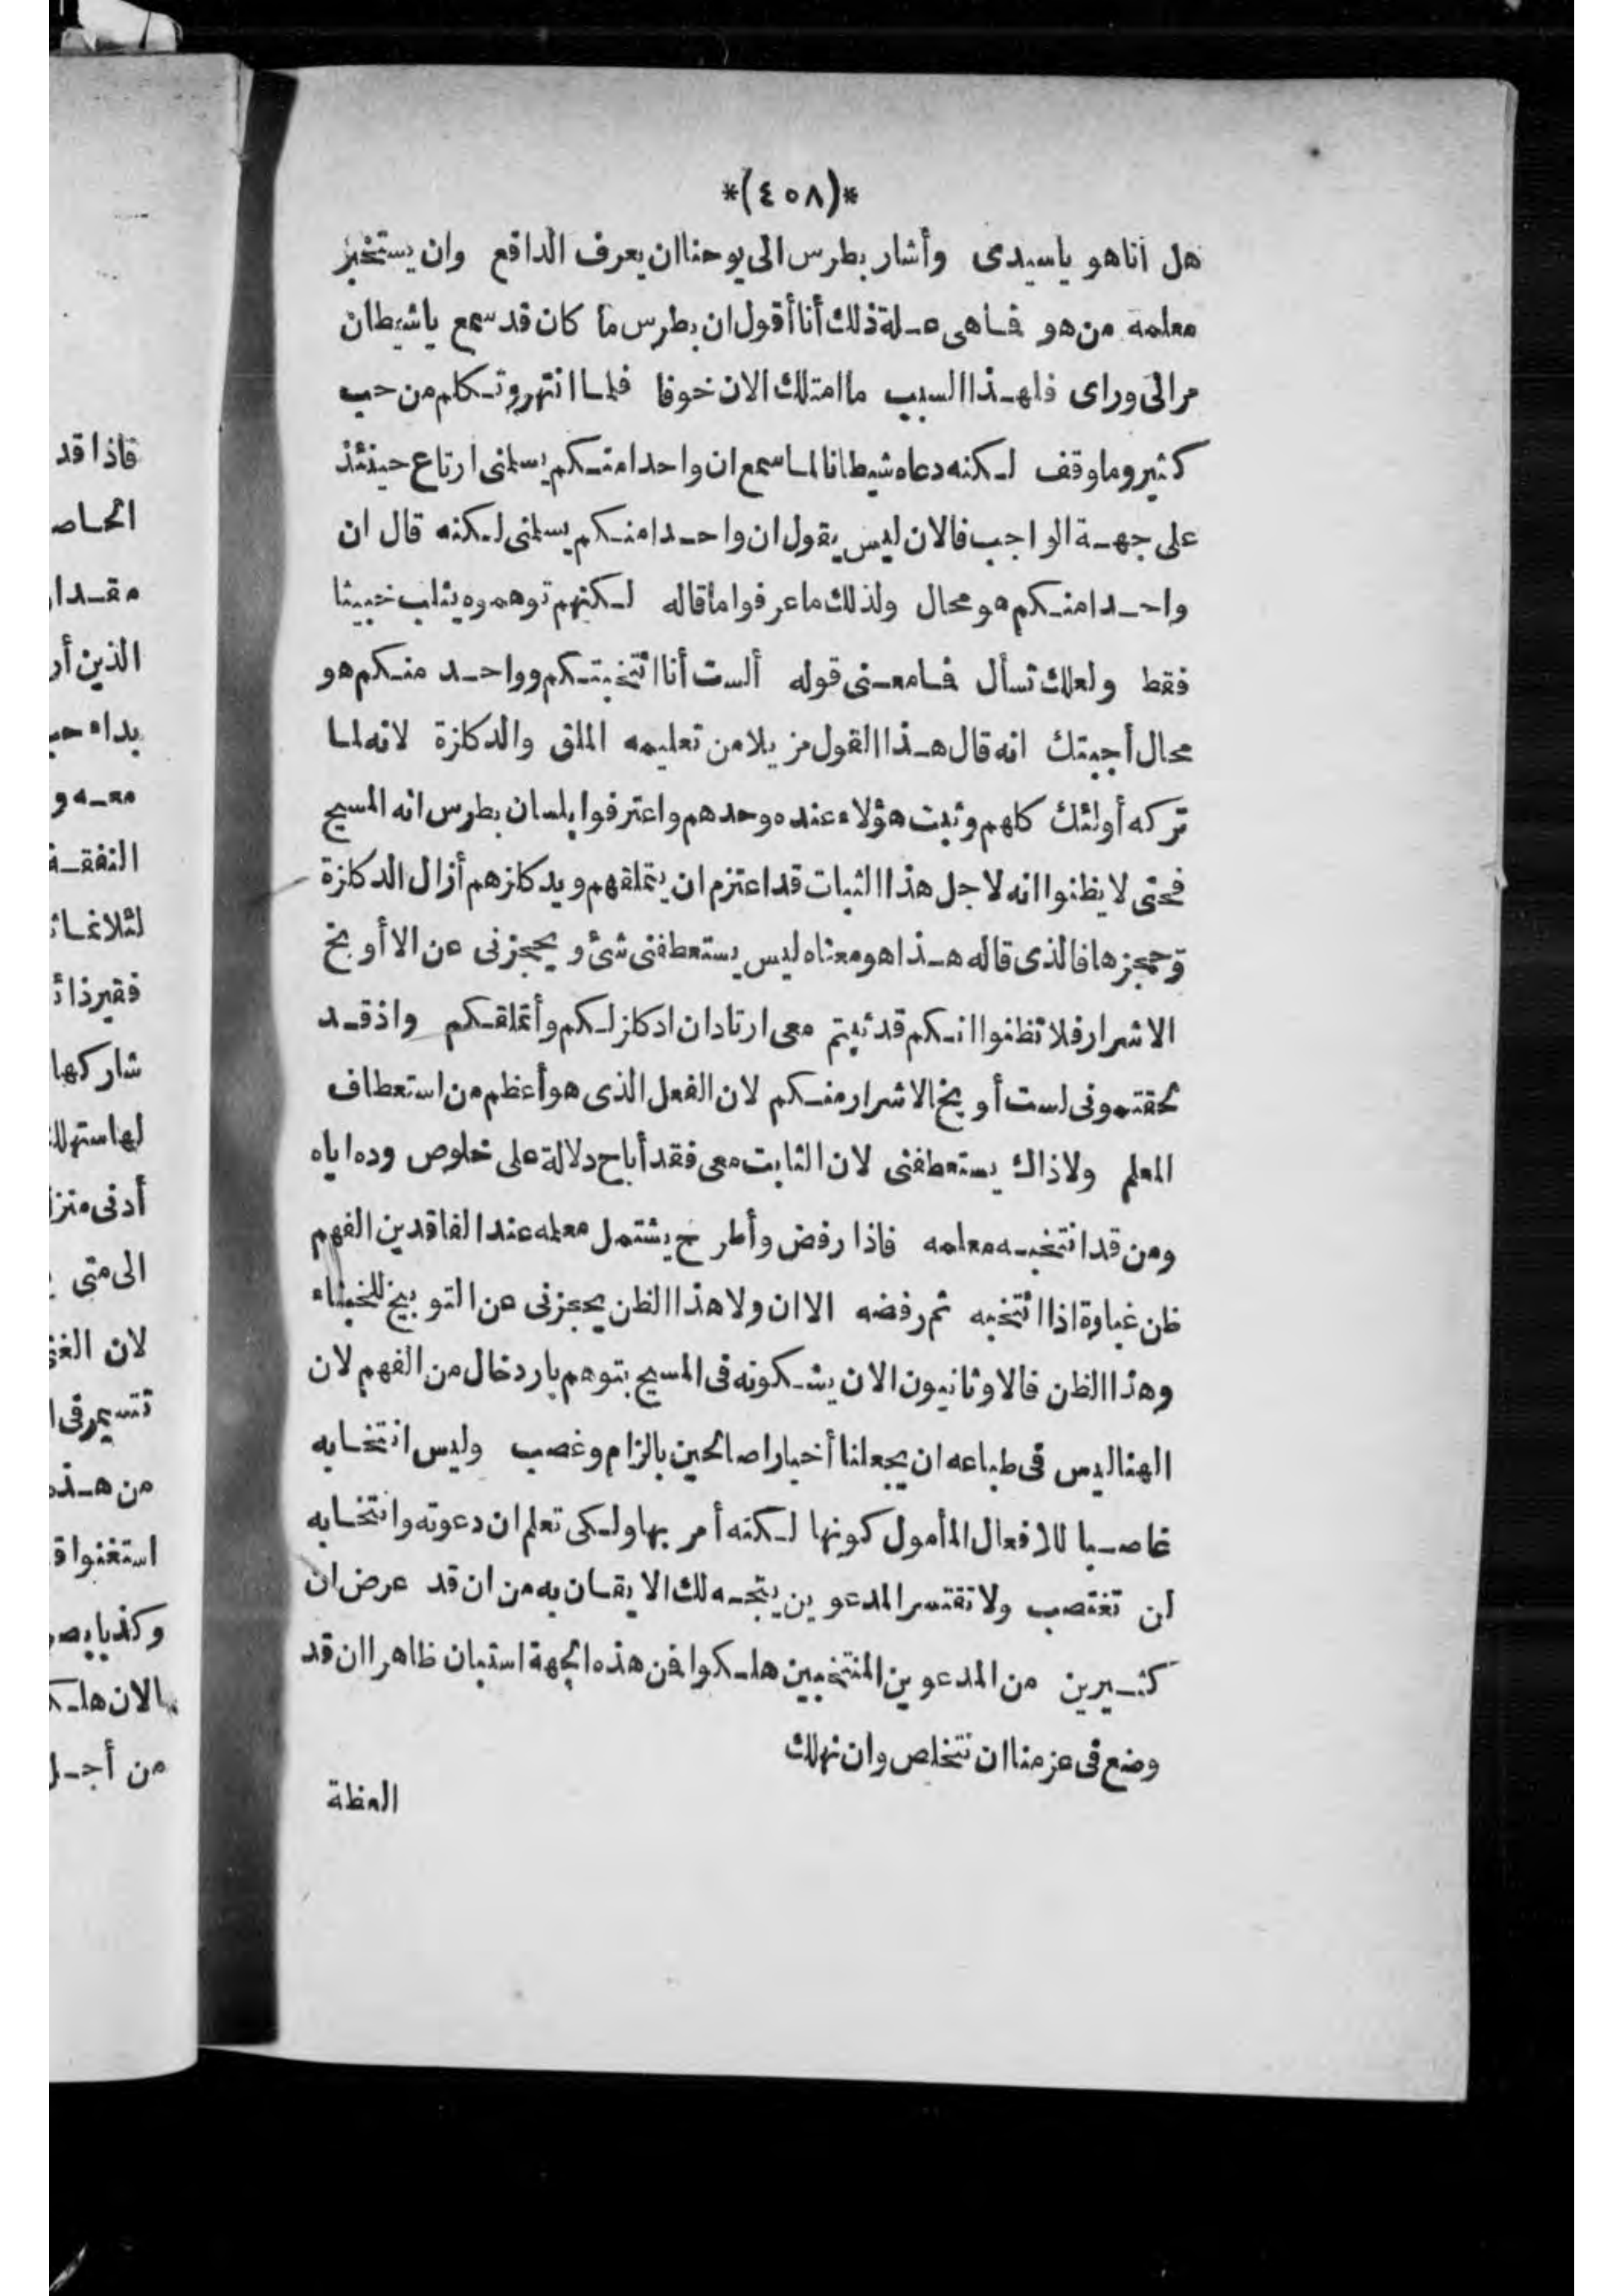 *(٤٥٨)*
هل أنا هو ياسيدى وأشار بطرس الى يوحنا ان يعرف الدافع وان يستخبر
معلمه من هو فما هى علة ذلك أنا أقول ان بطرس ما كان قد سمع ياشيطان
مر الى وراى فلهذا السبب ما امتلك الان خوفا فلما انتهر وتكلم من حب
كثير وما وقف لكنه دعاه شيطانا لما سمع ان واحدا منكم يسلمنى ارتاع حينئذ
على جهة الواجب فالان ليس يقول ان واحدا منكم يسلمنى لكنه قال ان
واحدا منكم هو محال ولذلك ما عرفوا ما قاله لكنهم توهموه يثلب خبيثا
فقط ولعلك تسأل فما معنى قوله ألست أنا انتخبتكم وواحد منكم هو
محال أجبتك انه قال هذا القول مزيلا من تعليمه الملق والدكلزة لانه لما
تركه أولئك كلهم وثبت هؤلاء عنده وحدهم واعترفوا بلسان بطرس انه المسيح
فحتى لا يظنوا انه لاجل هذا الثبات قد اعتزم ان يتملقهم ويدكلزهم أزال الدكلزة
وحجزها فالذى قاله هذا هو معناه ليس يستعطفنى شئ ويحجزنى عن الا أوبخ
الاشرار فلا تظنوا انكم قد ثبتم معى ارتاد ان ادكلز لكم وأتملقكم واذ قد
لحقتمونى لست أوبخ الاشرار منكم لان الفعل الذى هو أعظم من استعطاف
المعلم ولا ذاك يستعطفنى لان الثابت معى فقد أباح دلالة على خلوص وده اياه
ومن قد انتخبه معلمه فاذا رفض وأطرح يشتمل معلمه عند الفاقدين الفهم
ظن غباوة اذا انتخبه ثم رفضه الا ان ولا هذا الظن يحجزنى عن التوبيخ للخبثاء
وهذا الظن فالاوثانيون الان يشكونه فى المسيح بتوهم بارد خال من الفهم لان
الهنا ليس فى طباعه ان يجعلنا أخيارا صالحين بالزام وغصب وليس انتخابه
غاصبا للافعال المأمول كونها لكنه أمر بها ولكى تعلم ان دعوته وانتخابه
لن تغتصب ولا تقتسر المدعوين يتجه لك الايقان به من ان قد عرض ان
كثيرين من المدعوين المنتخبين هلكوا فن هذه الجهة استبان ظاهرا ان قد
وضع فى عزمنا ان نتخلص وان نهلك
العظة
فاذا قد
الحاص
مقدا
الذين أر
بداء
معه و
النفقة
لثلاثمائ
فقير ذا
شاركها
لها استهلا
أدنى منز
الى متى
لان الغ
من هذ
استغنوا
وكذبا
الان هلك
من أجل